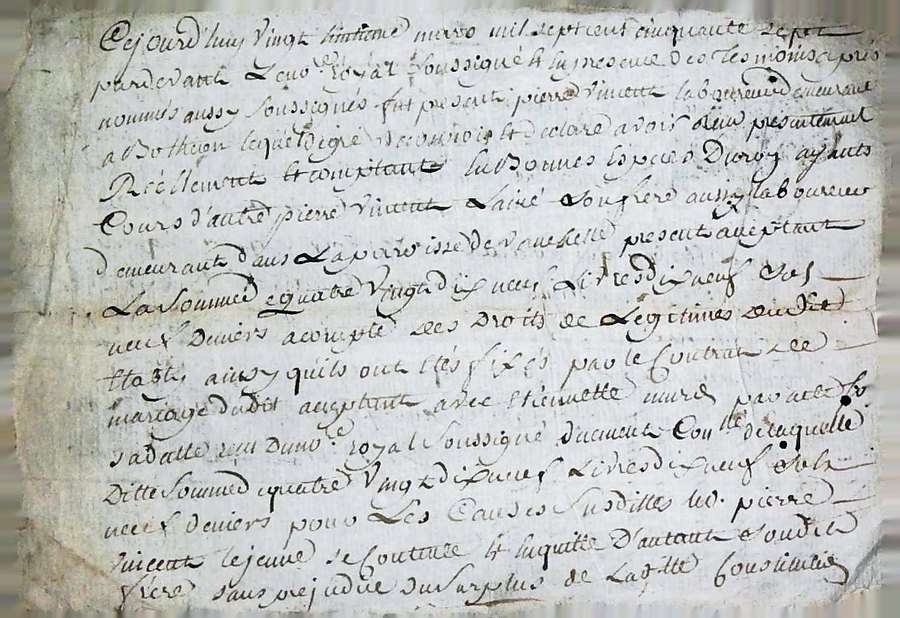 Cejourd'huy vingt huitieme mars mil sept cent cinquante sept
pardevant Le no.re royal soussigné & en presence des tesmoins apres
nommés aussy soussignés fut present pierre vincent laboureur demeurant
a Botheon lequel de gré reconnoit & declare avoir Reçu presentement
Réellement & comptant En Bonnes Especes Du roy ayants
Cours d'autre pierre vincent L'ainé son frere aussy laboureur
demeurant dans La parroisse de present acceptant
La somme de quatre vingt dix neuf Livres dix neuf sols
neuf deniers a compte des Droits de Legitimes
Etably ainsy quils ont étés fixés par le Contrat de
mariage dudit acceptant avec Etiennette par acte
sa datte reçu Du no.re royal soussigné d'uement Con.llé de laquelle
Ditte somme de quatre vingt dix neuf Livres dix neuf sols
neuf deniers pour Les Causes susdittes led. pierre
vincent le jeune se Contente & En quitte D'autant son dit
frère sans prejudice du surplus de La d.tte Constitution